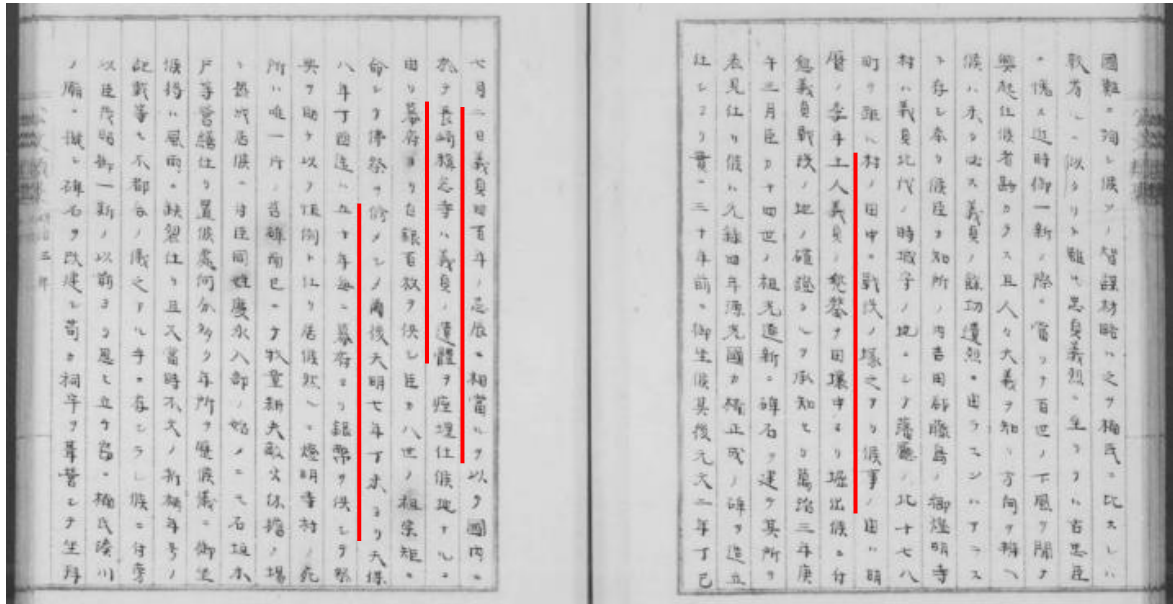 國難ニ殉シ候ヘハ智謀材略ハ之ヲ楠氏ニ比スレハ
軟有之ニ似タリト雖モ忠貞義烈ニ至ラテハ古忠臣
ニ愧ス近時御一新ノ際ニ當リテ百世ノ下風ヲ聞テ
興起仕候者尠カラス且人々大義ヲ知リ方向ヲ辨ヘ
候ハ未タ必ス義貞ノ餘功遺烈ニ由ラスンハアラス
ト存シ奉リ候臣カ知所ノ内吉田郡藤島ノ御燈明寺
村ハ義貞北伐ノ時城子ノ地ニシテ藩廳ノ北十七八
町ヲ距ル村ノ田中ニ戰歿ノ塚之アリ候事ノ由ハ明
暦ノ季年土人義貞ノ兜鍪ヲ田壤中ヨリ堀出候ニ付
愈義貞戰歿ノ地ノ確證トシテ承知セリ萬治三年庚
子三月臣カ十四世ノ祖光通新ニ碑石ヲ建テ其所ヲ
表見仕リ候ハ元禄四年源光國カ楠正成ノ碑ヲ造立
仕レヨリ實ニ三十年前ニ御坐候其後元文二年丁巳
七月二日義貞四百年ノ忌辰ニ相當ルヲ以テ國内ニ
於テ長崎稱念寺ハ義貞ノ遺體ヲ痊埋仕候地ナルニ
由リ幕府ヨリ白銀百枚ヲ供シ臣カ八世ノ祖宗矩ニ
命シテ佛祭ヲ修メシメ爾後天明七年丁未ヨリ天保
八年丁酉迄ハ五十年毎ニ幕府ヨリ銀幣ヲ供シテ祭
奠ヲ助ケ以テ恆例ト仕リ居候然ルニ燈明寺村ノ死
所ハ唯一片ノ舊碑而已ニテ牧童耕夫敲火休擔ノ場
ト相成居候ニ付臣同姓慶永入部ノ始メニコレ石垣木
戸等營繕仕リ置候處何分多少年所ヲ歴候儀ニ御坐
候得ハ風雨ニ缺裂仕リ且又當時不文ノ折柄年号ノ
記載等モ不都合ノ儀之アル候ニ付旁
以臣茂昭御一新ノ以前ヨリ思ヒ立チ窃ニ楠氏湊川
ノ廟ニ擬シ碑石ヲ改建シ祠宇ヲ營シテ